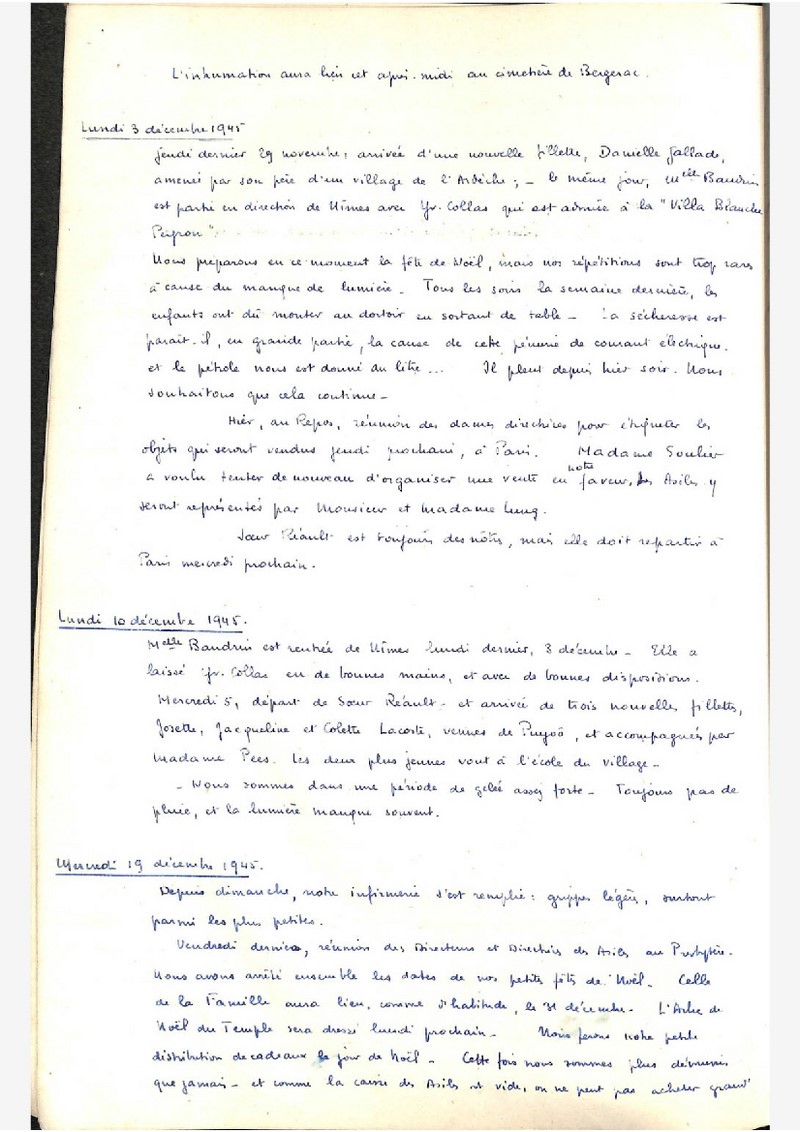 L'inhumation aura lieu cet après-midi au cimetière de Bergerac.
Lundi 3 décembre 1945
jeudi dernier 29 novembre, arrivée d'une nouvelle fillette, Danielle Gallade,
amenée par son père d'un village de l'Ardèche ; - le même jour, Melle Baudrin
est partie en direction de Nîmes avec Yv. Collas qui est admise à la "Villa Blanche
Peyron".
Nous préparons en ce moment la fête de Noël, mais nos répétitions sont trop rares
à cause du manque de lumière. Tous les soirs la semaine dernière, les
enfants ont dû monter au dortoir en sortant de table - La sécheresse est
paraît-il, en grande partie, la cause de cette pénurie de courant électrique.
et le pétrole nous est donné au litre ... Il pleut depuis hier soir. Nous
souhaitons que cela continue -
Hier, au Repos, réunion des dames directrices pour étiqueter les
objets qui seront vendus jeudi prochain, à Paris. Madame Soulier
a voulu tenter de nouveau d'organiser une vente en notre faveur, les Asiles y
seront représentés par Monsieur et Madame Lung.
Sœur Réault est toujours des nôtres, mais elle doit repartir à
Paris mercredi prochain.
Lundi 10 décembre 1945.
Melle Baudrin est rentrée de Nîmes lundi dernier, 3 décembre - Elle a
laissé Yv. Collas en de bonnes mains, et avec de bonnes dispositions.
Mercredi 5, départ de Sœur Réault - et arrivée de trois nouvelles fillettes,
Josette, Jacqueline et Colette Lacoste, venues de Puyoô, et accompagnées par
Madame Pees. Les deux plus jeunes vont à l'école du village -
- Nous sommes dans une période de gelée assez forte - Toujours pas de
pluie, et la lumière manque souvent.
Mercredi 19 décembre 1945.
Depuis dimanche, notre infirmerie s'est remplie : grippes légères, surtout
parmi les plus petites.
Vendredi dernier, réunion des Directeurs et Directrices des Asiles au Presbytère.
Nous avons arrêté ensemble les dates de nos petites fêtes de Noël. Celle
de la Famille aura lieu, comme d'habitude, le 31 décembre - L'Arbre de
Noël du Temple sera dressé lundi prochain - Nous ferons notre petite
distribution de cadeaux le jour de Noël - Cette fois nous sommes plus démunis
que jamais - et comme la caisse des Asiles est vide, on ne peut pas acheter grand'